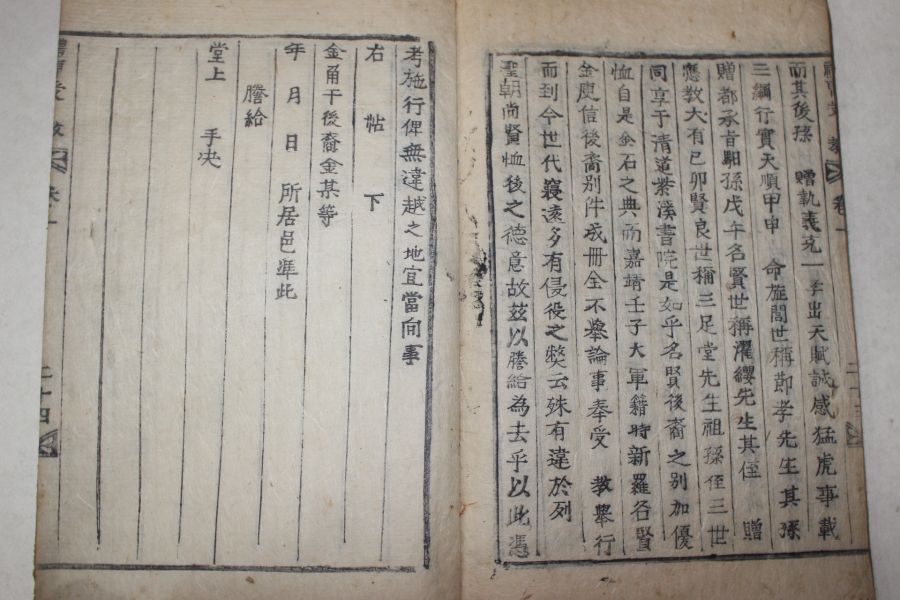 而其後孫 贈執義克一孝出天賦誠感猛虎事載
三綱行實天順甲申 命旌閭世稱節孝先生其孫
贈都承旨馹孫戊午名賢世稱濯纓先生其侄 贈
應教大有己卯賢良世稱三足堂先生祖孫侄三世
同享于清道紫溪書院是如乎名賢後裔之別加優
恤自是金石之典而嘉靖壬子大軍籍時新羅名賢
金庾信後裔別件成冊全不擧論事奉受 教擧行
而到今世代寢遠多有侵役之弊云殊有違於列
聖朝尚賢恤後之德意故玆以謄給為去乎以此憑
卷一
考施行俾無違越之地宜當向事
右 帖 下
金角干後裔金某等
年 月 日 所居邑準此
謄給
堂上 手决
二十四